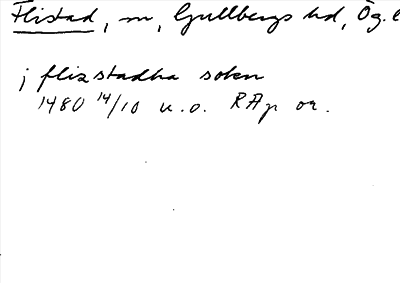 Flistad, sn, Gullbergs hd, Ög.
j flizstadha sokn
1480 14/10 u.o. RAp or.